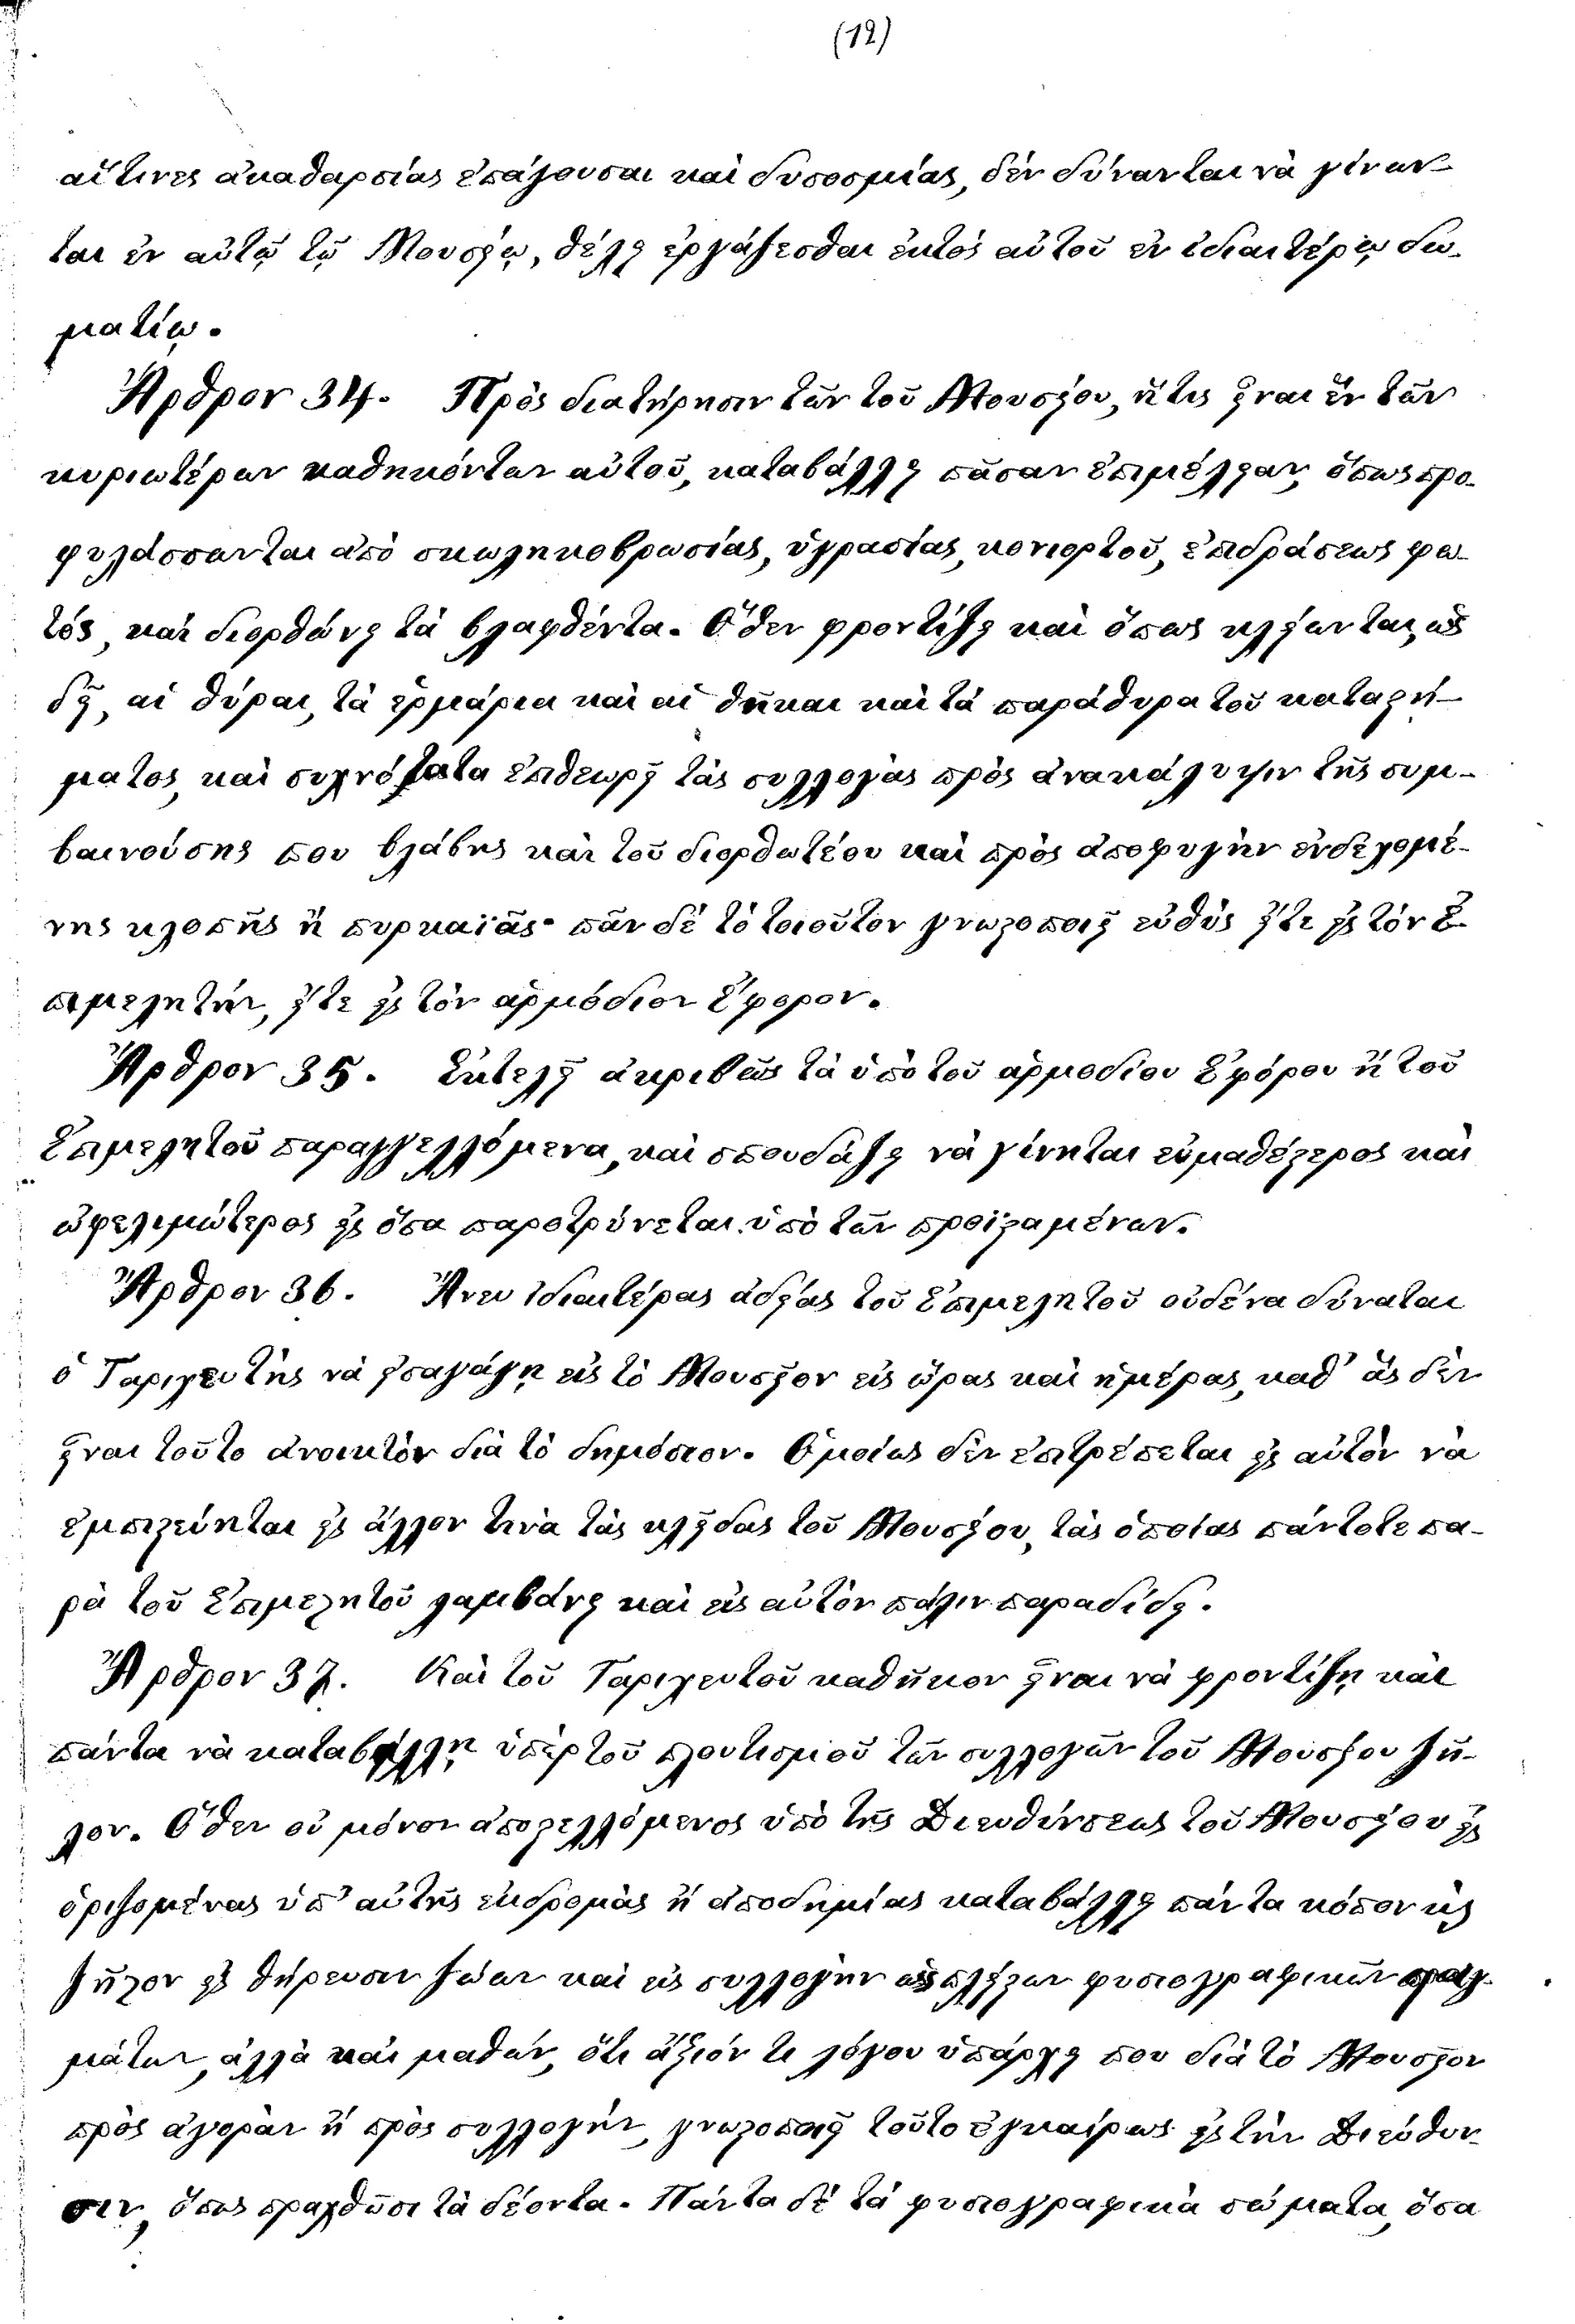 (12)
αἵτινες ἀκαθαρσίας ἐπάγουσαι καὶ δυσοσμίας, δὲν δύνανται νὰ γίνων-
ται ἐν αὐτῷ τῷ Μουσείῳ, θέλει ἐργάζεσθαι ἐκτὸς αὐτοῦ ἐν ἰδιαιτέρῳ δω-
ματίῳ.
Ἄρθρον 34. Πρὸς διατήρησιν τῶν τοῦ Μουσείου, ἥτις εἶναι ἓν τῶν
κυριωτέρων καθηκόντων αὐτοῦ, καταβάλλει πᾶσαν ἐπιμέλειαν, ὅπως προ-
φυλάσσωνται ἀπὸ σκωληκοβρωσίας, ὑγρασίας, κονιορτοῦ, ἐπιδράσεως φω-
τός, καὶ διορθώνει τὰ βλαφθέντα. Ὅθεν φροντίζει καὶ ὅπως κλείωνται, ὡς
δεῖ, αἱ θύραι, τὰ ἑρμάρια καὶ αἱ θῆκαι καὶ τὰ παράθυρα τοῦ καταστή-
ματος, καὶ συχνότατα ἐπιθεωρεῖ τὰς συλλογὰς πρὸς ἀνακάλυψιν τῆς συμ-
βαινούσης που βλάβης καὶ τοῦ διορθωτέου καὶ πρὸς ἀποφυγὴν ἐνδεχομέ-
νης κλοπῆς ἢ πυρκαϊᾶς· πᾶν δὲ τὸ τοιοῦτον γνωστοποιεῖ εὐθὺς εἴτε εἰς τὸν Ἐ-
πιμελητήν, εἴτε εἰς τὸν ἁρμόδιον Ἔφορον.
Ἄρθρον 35. Ἐκτελεῖ ἀκριβῶς τὰ ὑπὸ τοῦ ἁρμοδίου Ἐφόρου ἢ τοῦ
Ἐπιμελητοῦ παραγγελλόμενα, καὶ σπουδάζει νὰ γίνηται εὐμαθέστερος καὶ
ὠφελιμώτερος εἰς ὅσα παροτρύνεται ὑπὸ τῶν προϊσταμένων.
Ἄρθρον 36. Ἄνευ ἰδιαιτέρας ἀδείας τοῦ Ἐπιμελητοῦ οὐδένα δύναται
ὁ Ταριχευτὴς νὰ εἰσαγάγῃ εἰς τὸ Μουσεῖον εἰς ὥρας καὶ ἡμέρας, καθ' ἃς δὲν
εἶναι τοῦτο ἀνοικτὸν διὰ τὸ δημόσιον. Ὁμοίως δὲν ἐπιτρέπεται εἰς αὐτὸν νὰ
ἐμπιστεύηται εἰς ἄλλον τινὰ τὰς κλεῖδας τοῦ Μουσείου, τὰς ὁποίας πάντοτε πα-
ρὰ τοῦ Ἐπιμελητοῦ λαμβάνει καὶ εἰς αὐτὸν πάλιν παραδίδει.
Ἄρθρον 37. Καὶ τοῦ Ταριχευτοῦ καθῆκον εἶναι νὰ φροντίζῃ καὶ
πάντα νὰ καταβάλλῃ ὑπὲρ τοῦ πλουτισμοῦ τῶν συλλογῶν τοῦ Μουσείου ζῆ-
λον. Ὅθεν οὐ μόνον ἀποστελλόμενος ὑπὸ τῆς Διευθύνσεως τοῦ Μουσείου εἰς
ὁριζομένας ὑπ' αὐτῆς ἐκδρομὰς ἢ ἀποδημίας καταβάλλει πάντα κόπον καὶ
ζῆλον εἰς θήρευσιν ζώων καὶ εἰς συλλογὴν ὡς πλείστων φυσιογραφικῶν πραγ-
μάτων, ἀλλὰ καὶ μαθών, ὅτι ἄξιόν τι λόγου ὑπάρχει που διὰ τὸ Μουσεῖον
πρὸς ἀγορὰν ἢ πρὸς συλλογήν, γνωστοποιεῖ τοῦτο ἐγκαίρως εἰς τὴν Διεύθυν-
σιν, ὅπως πραχθῶσι τὰ δέοντα. Πάντα δὲ τὰ φυσιογραφικὰ σώματα, ὅσα